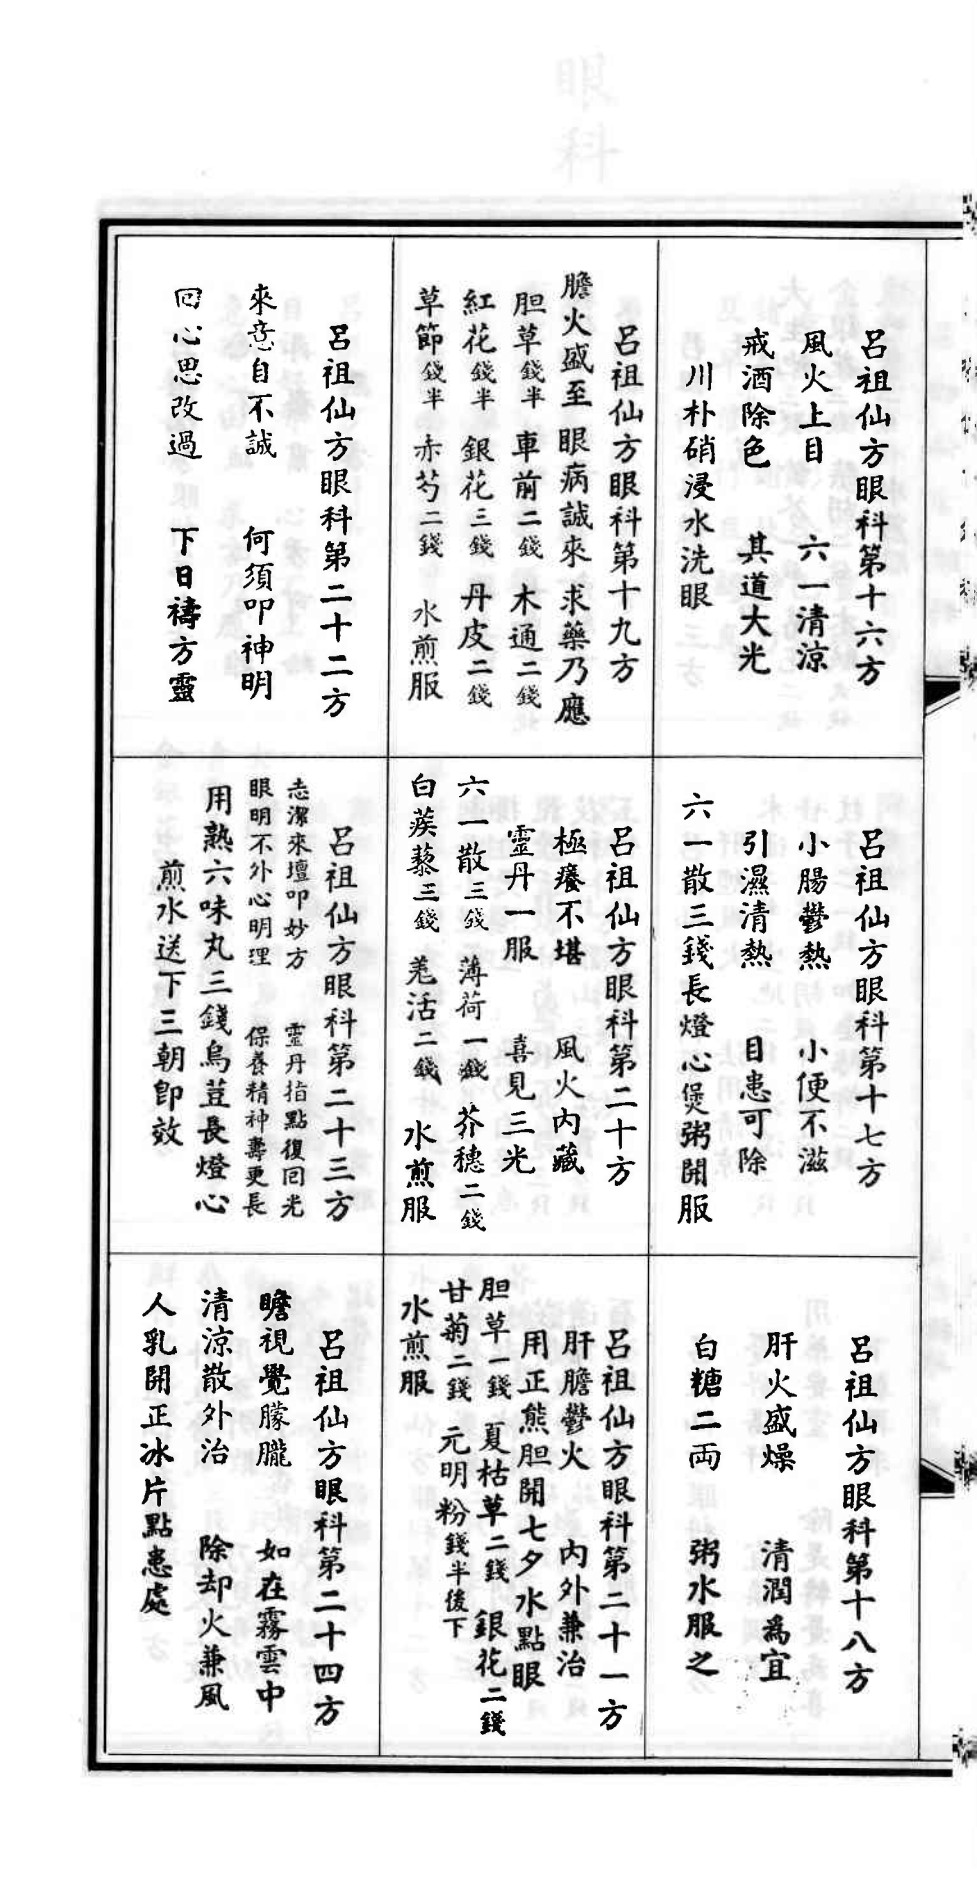 眼科
呂祖仙方眼科第十六方
風火上目　六一清涼
戒酒除色　其道大光
川朴硝浸水洗眼
呂祖仙方眼科第十七方
小腸鬱熱　小便不滋
引濕清熱　目患可除
六一散三錢長燈心煲粥開服
呂祖仙方眼科第十八方
肝火盛燥　清潤為宜
白糖二両　粥水服之
呂祖仙方眼科第十九方
膽火盛至眼病誠來求藥乃應
胆草錢半　車前二錢　木通二錢
紅花錢半　銀花三錢　丹皮二錢
草節錢半　赤芍二錢　水煎服
呂祖仙方眼科第二十方
極癢不堪　風火內藏
靈丹一服　喜見三光
六一散三錢　薄荷一錢　芥穗二錢
白蒺藜三錢　羗活二錢　水煎服
呂祖仙方眼科第二十一方
肝膽鬱火　內外兼治
用正熊胆開七夕水點眼
胆草一錢　夏枯草二錢　銀花二錢
甘菊二錢　元明粉錢半後下
水煎服
呂祖仙方眼科第二十二方
來意自不誠　何須叩神明
回心思改過　下日禱方靈
呂祖仙方眼科第二十三方
志潔來壇叩妙方　靈丹指點復回光
眼明不外心明理　保養精神壽更長
用熟六味丸三錢烏荳長燈心
煎水送下三朝即效
呂祖仙方眼科第二十四方
瞻視覺朦朧　如在霧雲中
清涼散外治　除却火兼風
人乳開正冰片點患處